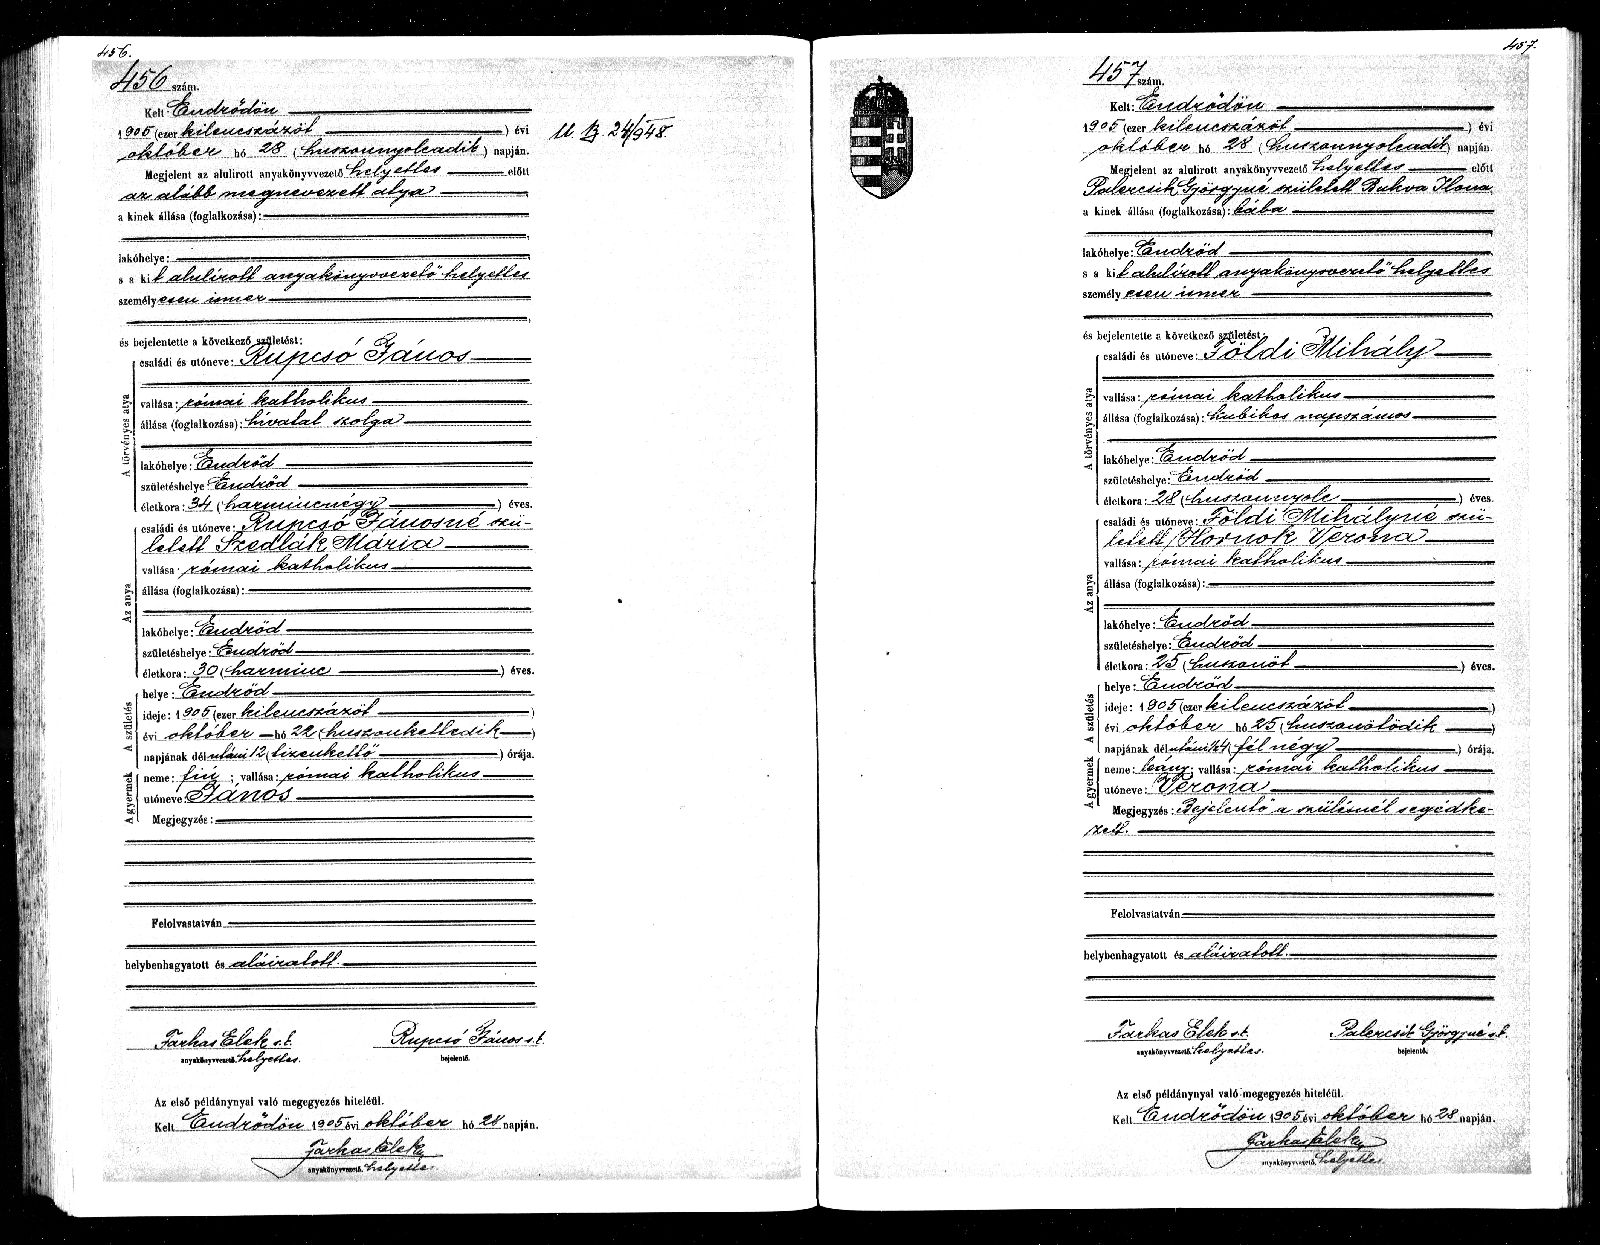 456.
456 szám.
Kelt Endrődön
1905 (ezer kilenczszázöt) évi
október hó 28 (huszonnyolcadik) napján.
Megjelent az alulirott anyakönyvvezető helyettes előtt
az alább megnevezett atya
a kinek állása (foglalkozása):
lakóhelye:
s a kit alulírott anyakönyvvezető helyettes
személyesen ismer
és bejelentette a következő születést:
A törvényes atya
családi és utóneve: Rupcsó János
vallása: római katholikus
állása (foglalkozása): hivatal szolga
lakóhelye: Endrőd
születéshelye: Endrőd
életkora: 34 (harmincnégy) éves.
Az anya
családi és utóneve: Rupcsó Jánosné szü-
letett Szedlák Mária
vallása: római katholikus
állása (foglalkozása):
lakóhelye: Endrőd
születéshelye: Endrőd
életkora: 30 (harminc) éves.
A születés
helye: Endrőd
ideje: 1905 (ezer kilencszázöt)
évi október hó 22 (huszonkettedik)
napjának délutáni 12 (tizenkettő) órája.
A gyermek
neme: fiú; vallása: római katholikus
utóneve: János
Megjegyzés:
Felolvastatván
helybenhagyatott és aláiratott.
Farkas Elek s.k. Rupcsó János s.k.
anyakönyvvezető helyettes. bejelentő.
Az első példánynyal való megegyezés hiteléül.
Kelt Endrődön 1905 évi október hó 28 napján.
Farkas Elek
anyakönyvvezető helyettes.
457.
457 szám.
Kelt: Endrődön
1905 (ezer kilencszázöt) évi
október hó 28 (huszonnyolcadik) napján.
Megjelent az alulirott anyakönyvvezető helyettes előtt
Palercsik Györgyné született Dukva Ilona
a kinek állása (foglalkozása): bába
lakóhelye: Endrőd
s a kit alulírott anyakönyvvezető helyettes
személyesen ismer
és bejelentette a következő születést:
A törvényes atya
családi és utóneve: Földi Mihály
vallása: római katholikus
állása (foglalkozása): kubikos napszámos
lakóhelye: Endrőd
születéshelye: Endrőd
életkora: 28 (huszonnyolc) éves.
Az anya
családi és utóneve: Földi Mihályné szü-
letett Hornok Verona
vallása: római katholikus
állása (foglalkozása):
lakóhelye: Endrőd
születéshelye: Endrőd
életkora: 25 (huszonöt) éves.
A születés
helye: Endrőd
ideje: 1905 (ezer kilencszázöt)
évi október hó 25 (huszonötödik)
napjának délutáni ½4 (fél négy) órája.
A gyermek
neme: leány; vallása: római katholikus
utóneve: Verona
Megjegyzés: Bejelentő a szülésnél segédke-
zett.
Felolvastatván
helybenhagyatott és aláiratott.
Farkas Elek s.k. Palercsik Györgyné s.k.
anyakönyvvezető helyettes. bejelentő.
Az első példánynyal való megegyezés hiteléül.
Kelt Endrődön 1905 évi október hó 28 napján.
Farkas Elek
anyakönyvvezető helyettes.